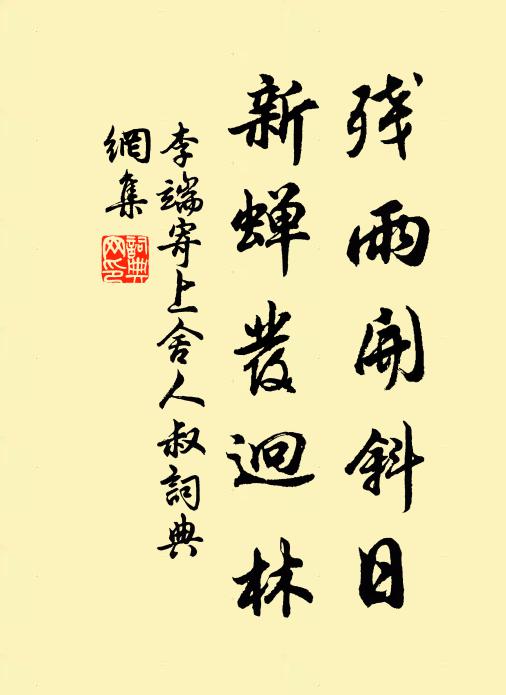 残雨开斜日
新蝉發迴林
李端寄上舍人叔詞典
網集
詞典
网印